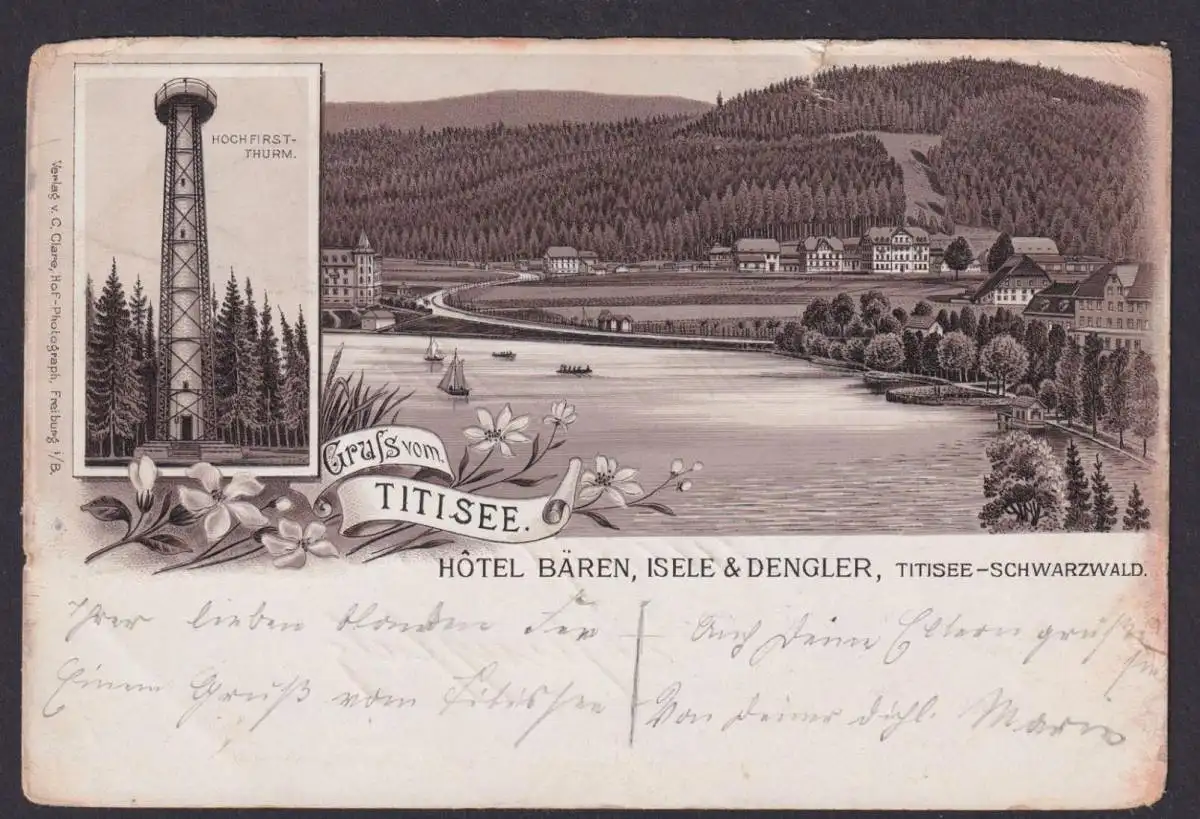 HOCHFIRST-
THURM.
Verlag v. C. Clare, Hof-Photograph, Freiburg i/B.
Gruss vom
TITISEE.
HÔTEL BÄREN, ISELE & DENGLER, TITISEE-SCHWARZWALD.
Ihrer lieben blonden Fee
Einen Gruß vom Titisee
Auch Deine Eltern grüßt
sie
Von Deiner dichl. Marie